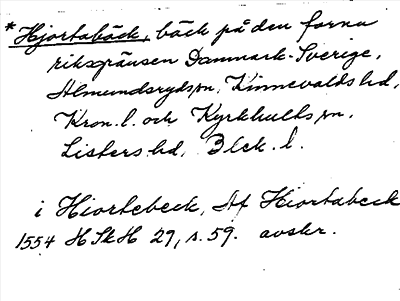 * Hjortabäck, bäck på den forna
riksgränsen Danmark-Sverige,
Almundsryds sn, Kinnevalds hd,
Kron. l. och Kyrkhults sn,
Listers hd, Blek. l.
i Hiortebeck, Af Hiortabeck
1554 HSkH 29, s. 59. avskr.